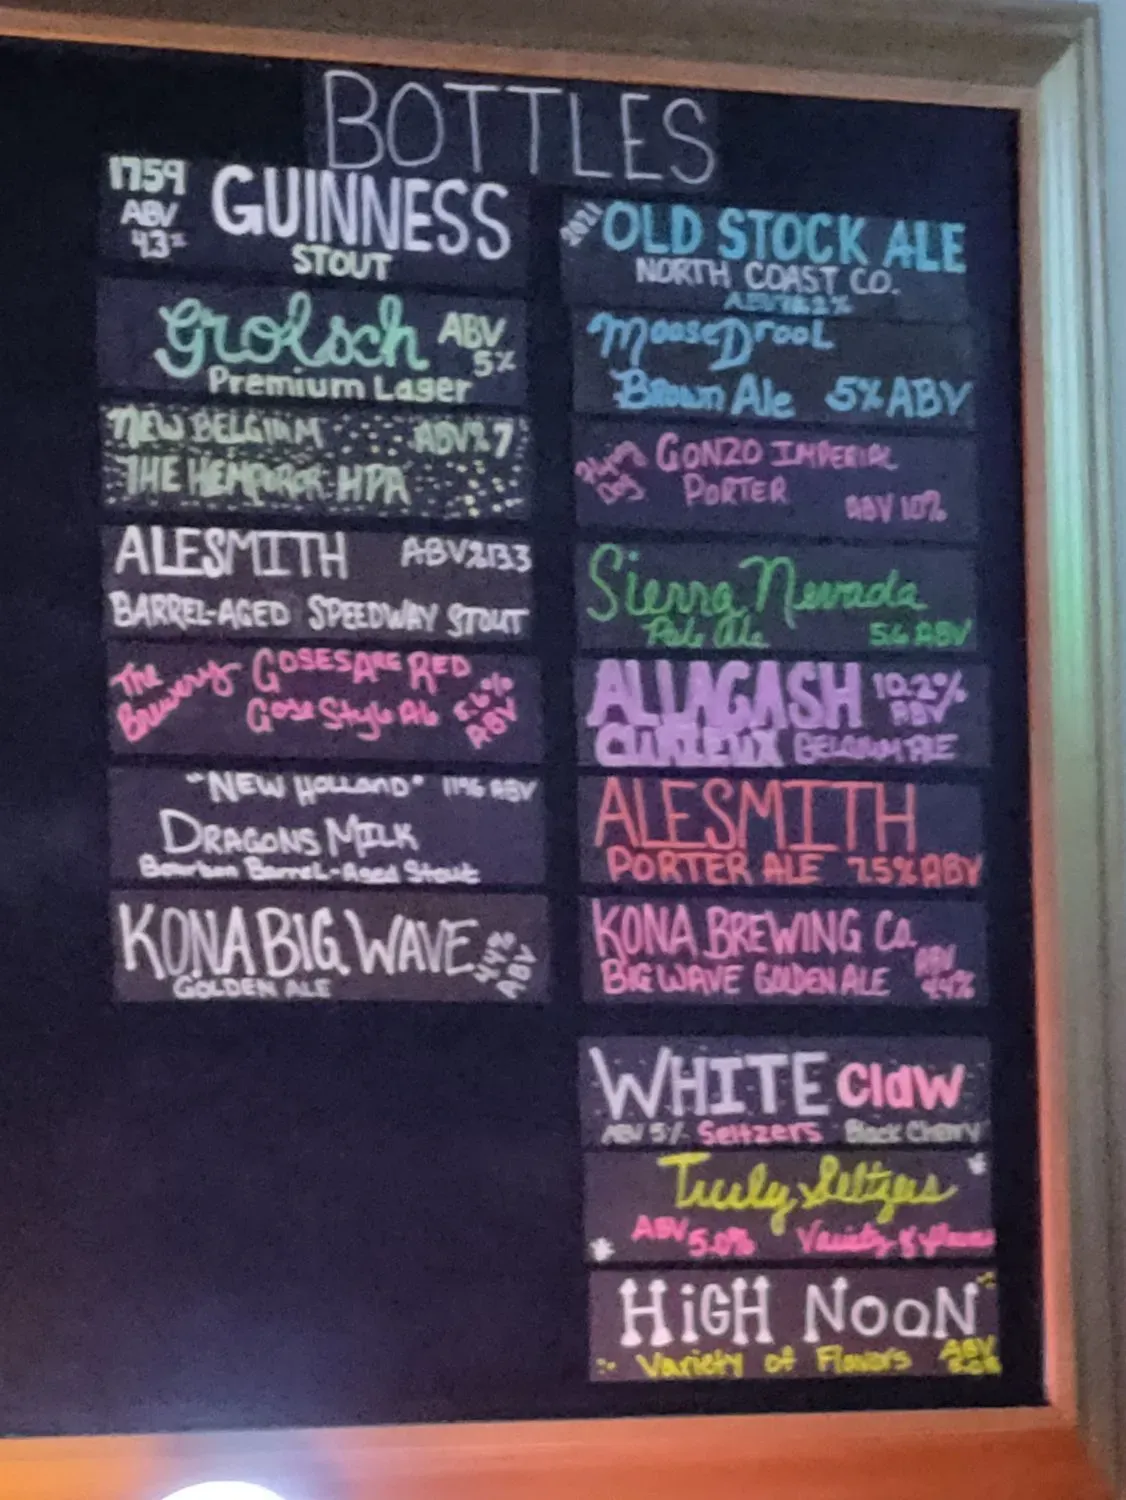 BOTTLES
1759
ABV
4.3%
GUINNESS
STOUT
Grolsch
ABV
5%
Premium Lager
NEW BELGIUM ABV% 7
THE HEMPEROR HPA
ALESMITH ABV% 13.3
BARREL-AGED SPEEDWAY STOUT
The
Bruery
GOSES ARE RED
Gose Style Ale
5.6%
ABV
"NEW HOLLAND" 11% ABV
DRAGONS MILK
Bourbon Barrel-Aged Stout
KONA BIG WAVE
4.4%
ABV
GOLDEN ALE
2021
OLD STOCK ALE
NORTH COAST CO.
Moose Drool
Brown Ale 5% ABV
Flying
Dog
GONZO IMPERIAL
PORTER
ABV 10%
Sierra Nevada
Pale Ale 5.6 ABV
ALLAGASH
10.2%
ABV
CURIEUX BELGIUM ALE
ALESMITH
PORTER ALE 7.5% ABV
KONA BREWING Co.
BIG WAVE GOLDEN ALE
ABV
4.4%
WHITE Claw
ABV 5% Seltzers Black Cherry
Truly Seltzers
ABV 5.0% Variety of flavors
HiGH NOON
Variety of Flavors ABV